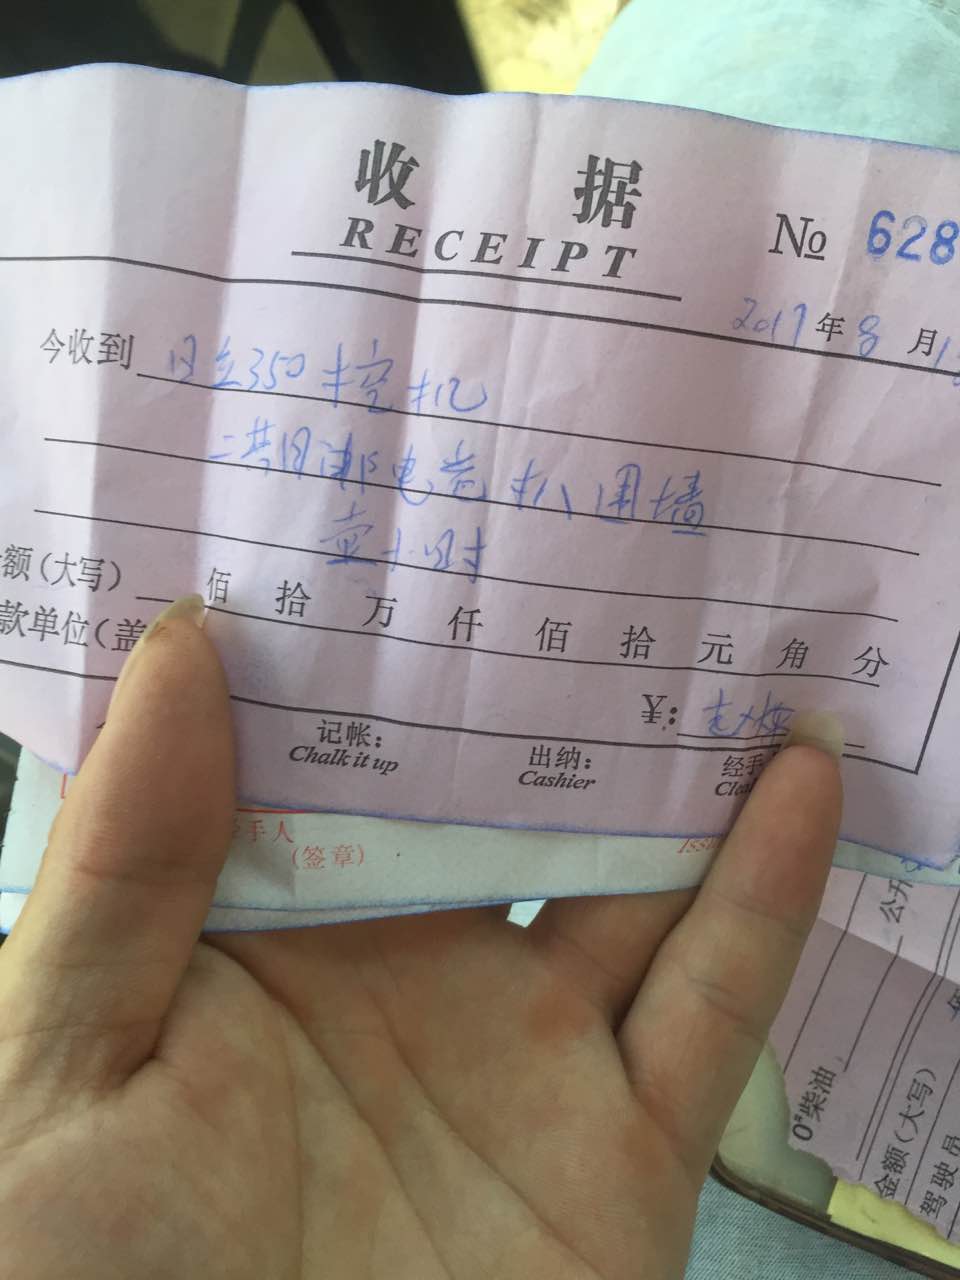 收 据
RECEIPT
№ 628
2017年8月1
今收到 日立350挖机
扒围墙
壹小时
额(大写) 佰 拾 万 仟 佰 拾 元 角 分
款单位(盖
¥:
记帐: 出纳: 经手
Chalk it up Cashier
手人
(签章)
公升
0#柴油
金额(大写)
驾驶员